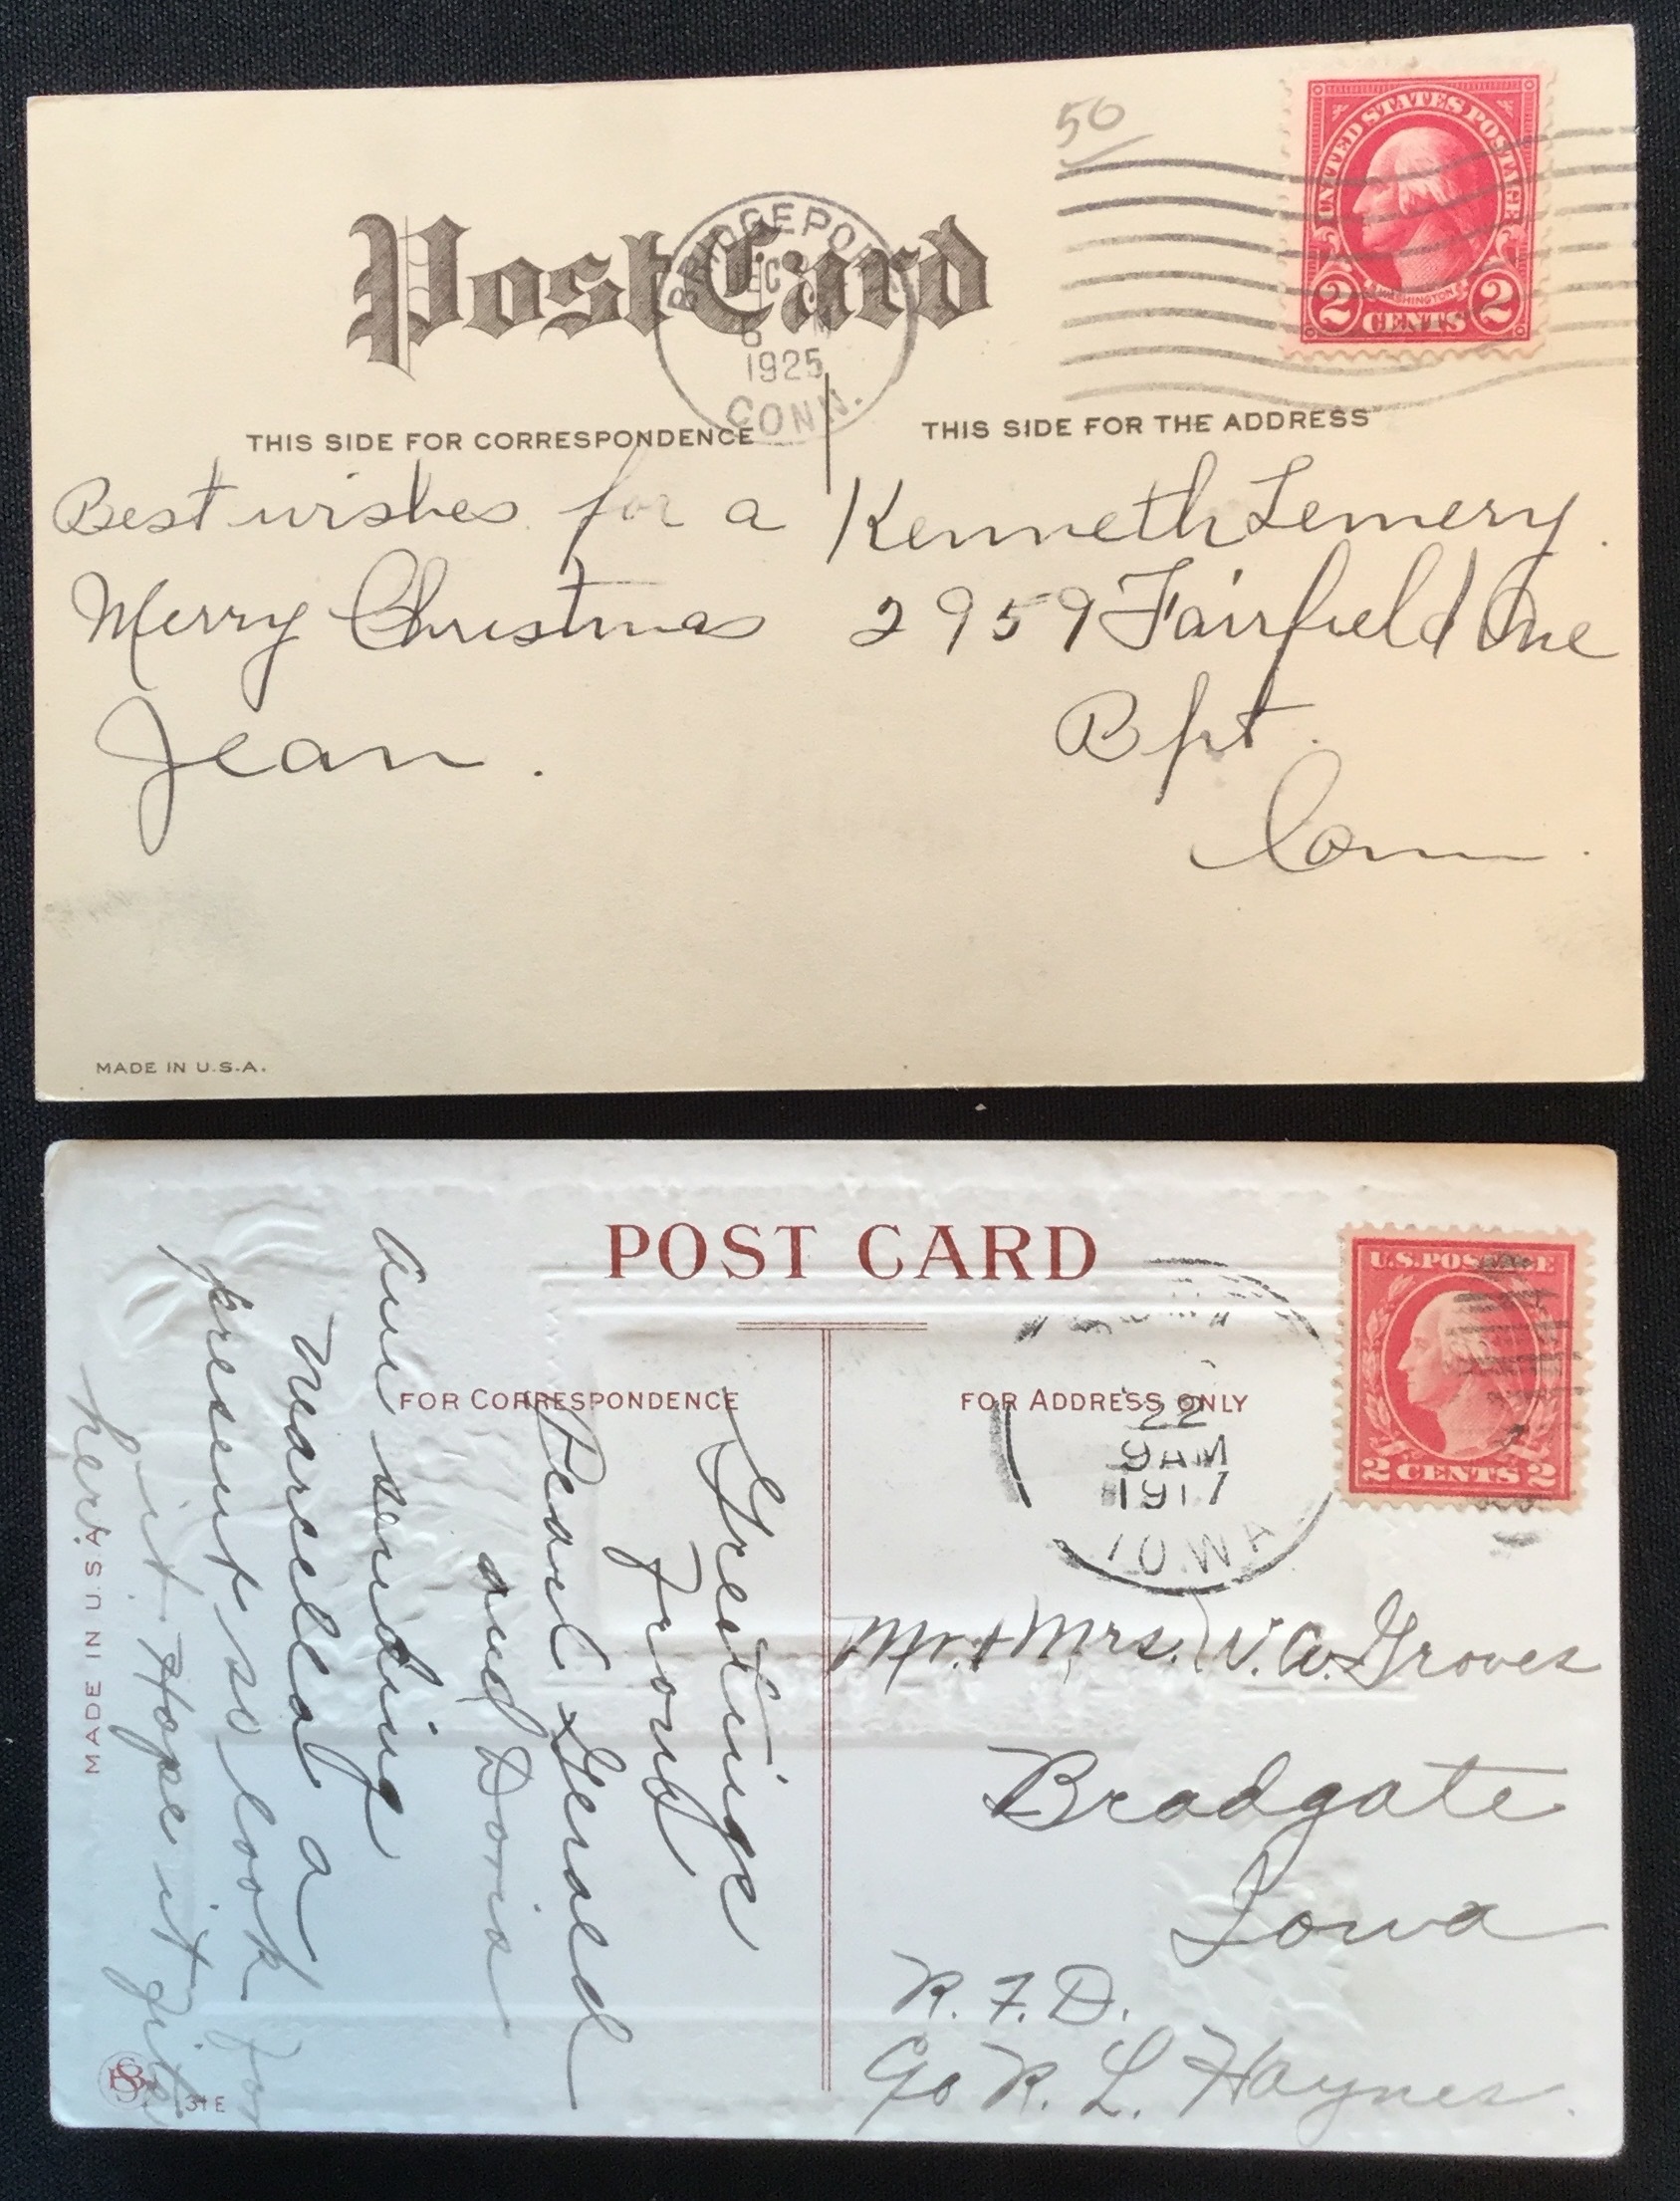 50
UNITED STATES POSTAGE
WASHINGTON
2 CENTS 2
Post Card
BRIDGEPORT
1925
CONN.
THIS SIDE FOR CORRESPONDENCE
THIS SIDE FOR THE ADDRESS
Best wishes for a
Merry Christmas
Jean.
Kenneth Lemery.
2959 Fairfield Ave
Bpt.
Conn.
MADE IN U.S.A.
POST CARD
U.S. POSTAGE
2 CENTS 2
FOR CORRESPONDENCE
FOR ADDRESS ONLY
22
9 AM
1917
IOWA
Greetings
from
Pearl Gerald
and Doris
Am sending
Marcella a
present so look for
it Hope it fits
her.
Mr. + Mrs. W. A. Groves
Bradgate
Iowa
R. F. D.
c/o R. L. Haynes.
MADE IN U.S.A.
31 E